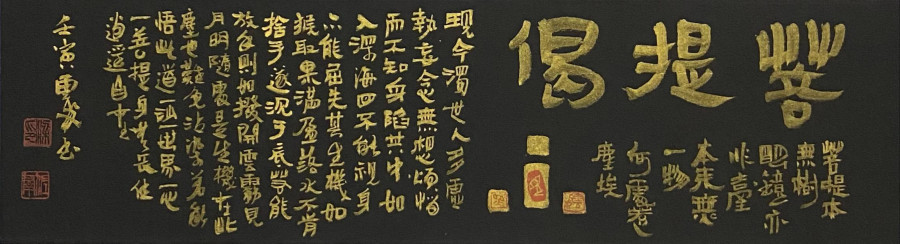 菩提偈
菩提本
無樹
明鏡亦
非臺
本來無
一物
何處惹
塵埃
现今濁世人多慮
執妄念無想煩惱
而不知身陷其中如
入深海四不能視身
不能屈失其生機如
猴取果滿盈落水不肯
捨手遂沉于底若能
放手則如撥開雲霧見
月明隨處是生機在此
塵世難免沾染若能
悟此道一派出界一心
一菩提身世長住
逍遥自在
壬寅 書